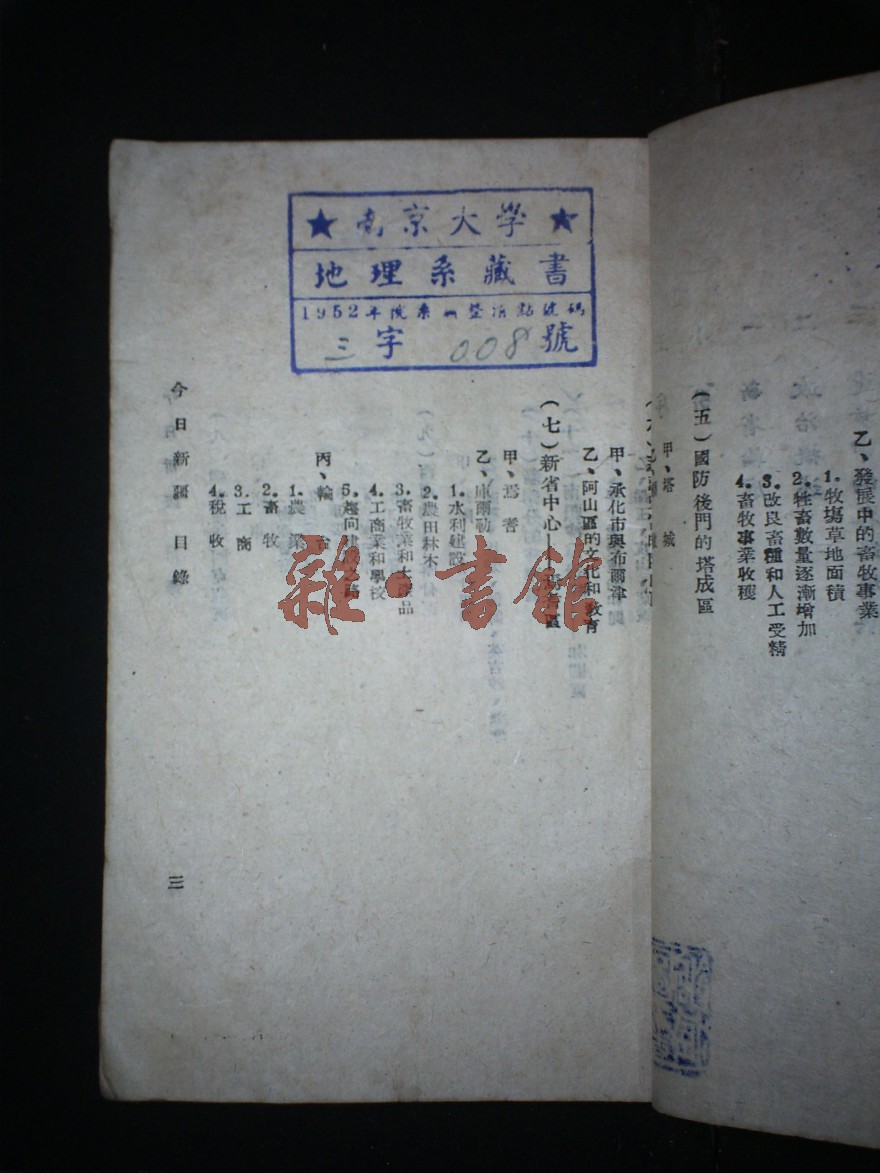 乙、發展中的畜牧事業
1.牧場草地面積
2.牲畜數量逐漸增加
3.改良畜種和人工受精
4.畜牧事業收穫
(五)國防後門的塔成區
甲、塔城
甲、承化市與布爾津
乙、阿山區的文化和教育
(七)新省中心——區
甲、焉耆
乙、庫爾勒
1.水利建設
2.農田林木
3.畜牧業和水產品
4.工商業和學校
5.趨向建設之路
丙、輪台
1.農業
2.畜牧
3.工商
4.稅收
今日新疆 目錄
三
★南京大學★
地理系藏書
1952年院系調整清點號碼
三字008號
雜·書館